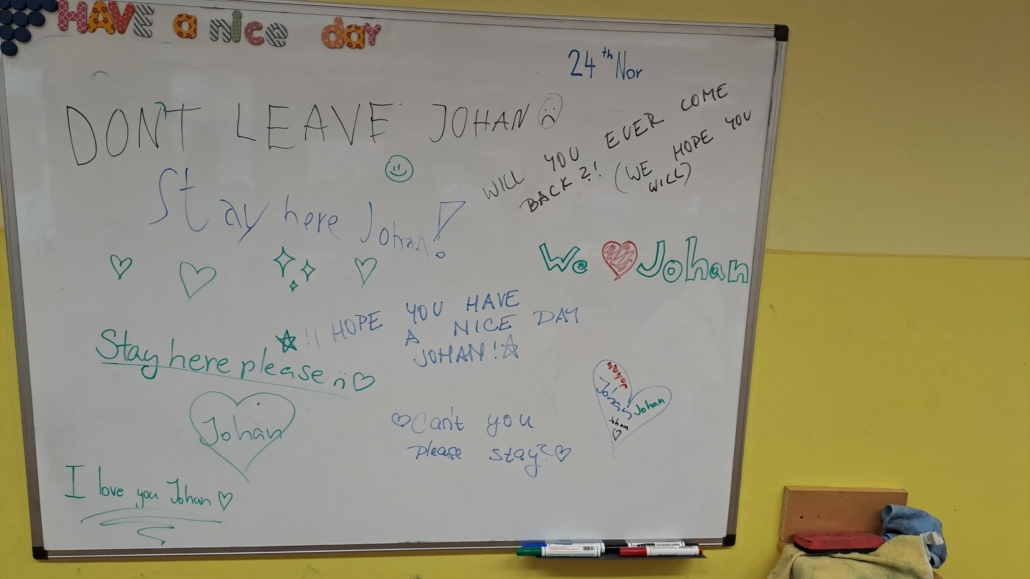 HAVE a nice day
24th Nor
DON'T LEAVE JOHAN
WILL YOU EVER COME
BACK?! (WE HOPE YOU
WILL)
Stay here Johan!
We Johan
! I HOPE YOU HAVE
A NICE DAY
JOHAN!
Stay here please
Johan
Can't you
please stay?
Johan
Johan
I love you Johan